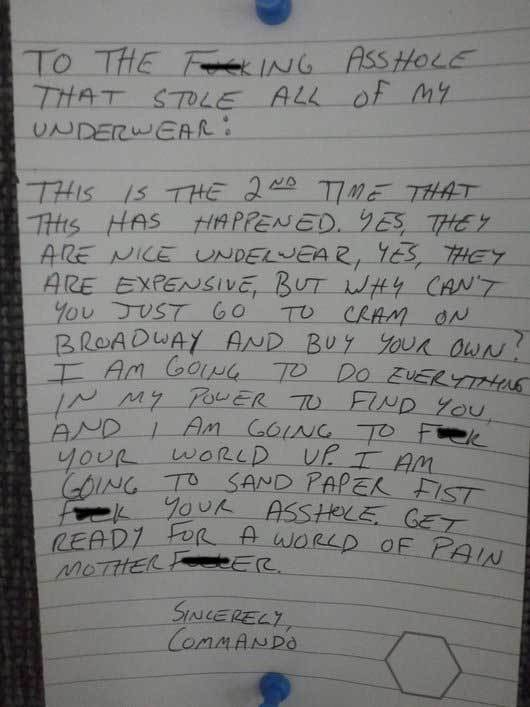 TO THE FUCKING ASSHOLE
THAT STOLE ALL OF MY
UNDERWEAR:
THIS IS THE 2ND TIME THAT
THIS HAS HAPPENED. YES, THEY
ARE NICE UNDERWEAR, YES, THEY
ARE EXPENSIVE, BUT WHY CAN'T
YOU JUST GO TO CRAM ON
BROADWAY AND BUY YOUR OWN?
I AM GOING TO DO EVERYTHING
IN MY POWER TO FIND YOU,
AND I AM GOING TO FUCK
YOUR WORLD UP. I AM
GOING TO SAND PAPER FIST
FUCK YOUR ASSHOLE. GET
READY FOR A WORLD OF PAIN
MOTHER FUCKER.
SINCERELY,
COMMANDO